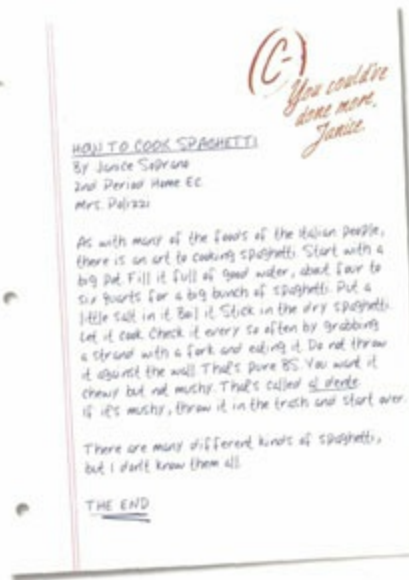 C-
You could've
done more,
Janice.
HOW TO COOK SPAGHETTI
By Janice Soprano
2nd Period Home EC
Mrs. Polizzi
As with many of the foods of the Italian people,
there is an art to cooking spaghetti. Start with a
big pot. Fill it full of good water, about four to
six quarts for a big bunch of spaghetti. Put a
little salt in it. Boil it. Stick in the dry spaghetti.
Let it cook. Check it every so often by grabbing
a strand with a fork and eating it. Do not throw
it against the wall. That's pure BS. You want it
chewy but not mushy. That's called al dente.
If it's mushy, throw it in the trash and start over.
There are many different kinds of spaghetti,
but I don't know them all.
THE END